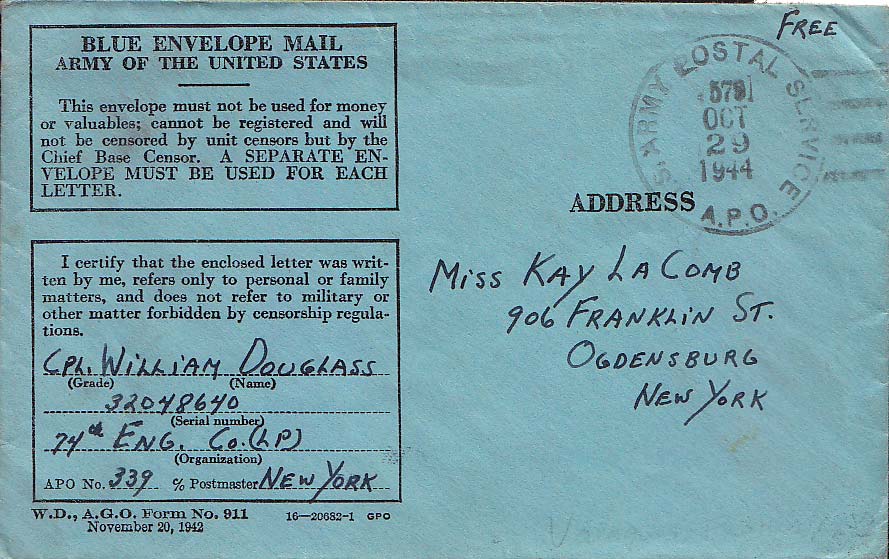 FREE
BLUE ENVELOPE MAIL
ARMY OF THE UNITED STATES
This envelope must not be used for money
or valuables; cannot be registered and will
not be censored by unit censors but by the
Chief Base Censor. A SEPARATE EN-
VELOPE MUST BE USED FOR EACH
LETTER.
S. ARMY POSTAL SERVICE
OCT
29
1944
A.P.O.
ADDRESS
MISS KAY LACOMB
906 FRANKLIN ST.
OGDENSBURG
NEW YORK
I certify that the enclosed letter was writ-
ten by me, refers only to personal or family
matters, and does not refer to military or
other matter forbidden by censorship regula-
tions.
CPL. WILLIAM DOUGLASS
(Grade) (Name)
32048640
(Serial number)
74th ENG. Co. (LP)
(Organization)
APO No. 339 % Postmaster NEW YORK
W.D., A.G.O. Form No. 911
November 20, 1942
16—20682-1 GPO